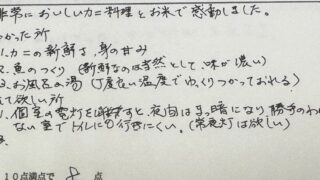 非常においしいカニ料理とお米で感動しました。
つかった所
1.カニの新鮮さ、身の甘み
2.魚のつくり(新鮮なのは当然として味が濃い)
3.お風呂の湯(丁度良い温度でゆっくりつかっておれる)
て欲しい所
1.個室の電灯を消すと、夜間はまっ暗になり勝手のわから
ない室でトイレに行きにくい。(常夜灯は欲しい)
10点満点で 8 点